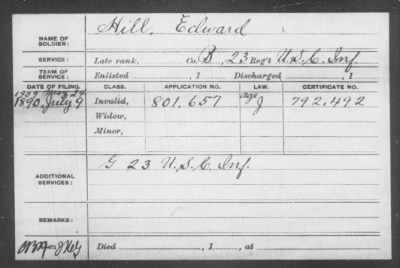 NAME OF SOLDIER: Hill, Edward
SERVICE: Late rank, Co. B, 23 Reg't U.S.C. Inf.
TERM OF SERVICE: Enlisted , 1 Discharged , 1
DATE OF FILING. CLASS. APPLICATION NO. LAW. CERTIFICATE NO.
1890, July 9 Invalid, 801.657 J 792,492
Widow,
Minor,
ADDITIONAL SERVICES: G 23 U.S.C. Inf.
REMARKS:
Died , 1 , at